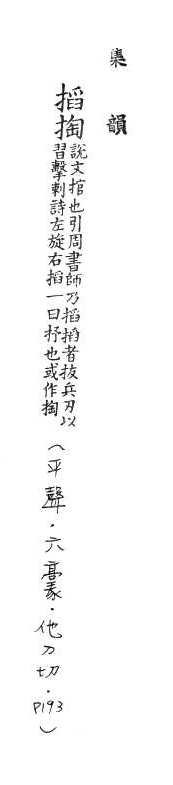 集韻
搯掏說文捾也引周書師乃搯搯者拔兵刃以
習擊刺詩左旋右搯一曰抒也或作掏
(平聲.六豪.他刀切.P193)